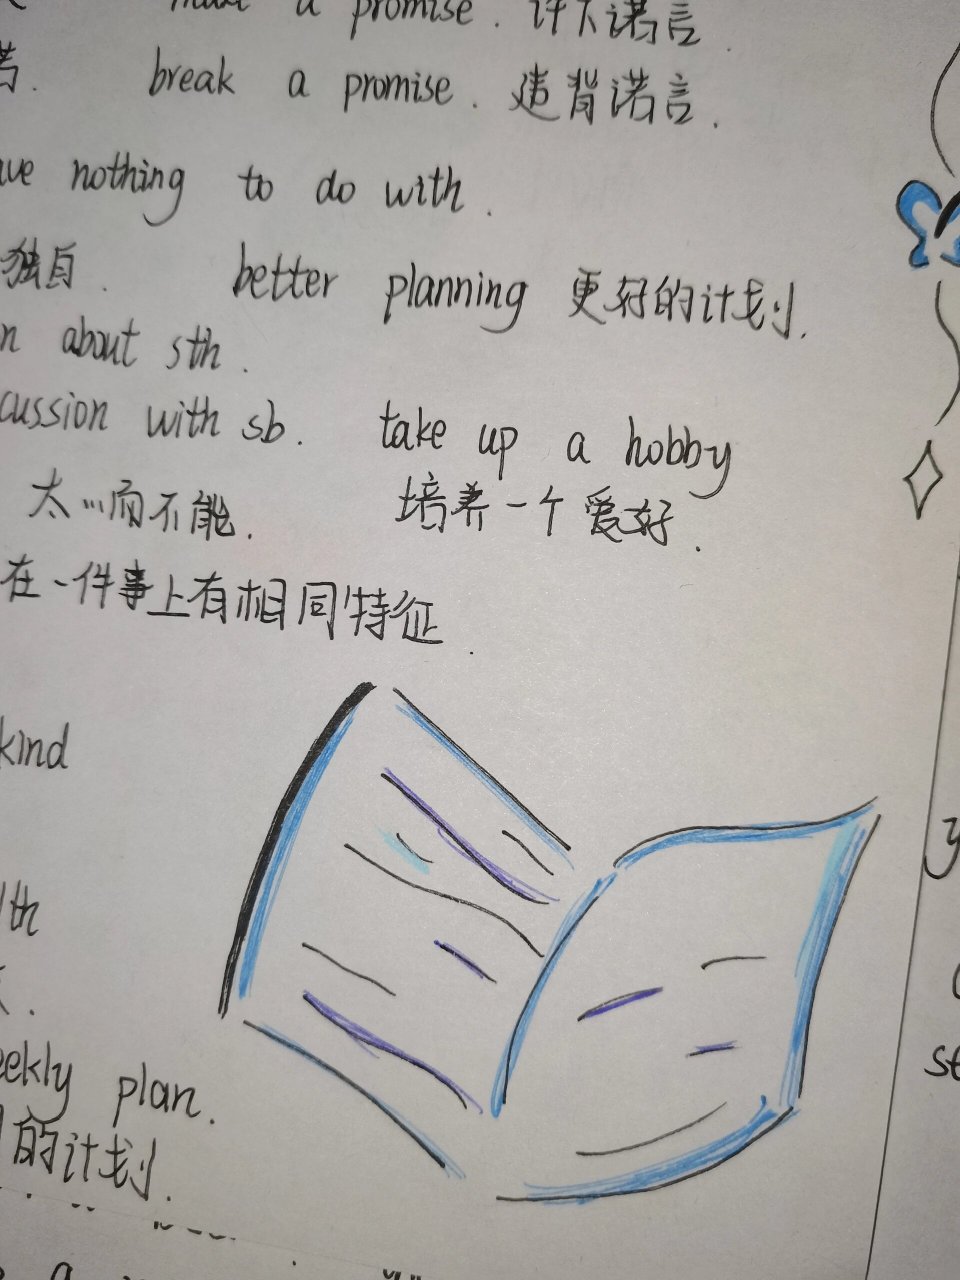 make a promise. 许下诺言.
诺. break a promise. 违背诺言.
nothing to do with.
独自. better planning 更好的计划.
about sth.
cussion with sb. take up a hobby
太…而不能. 培养一个爱好.
在一件事上有相同特征.
kind
eekly plan.
的计划.